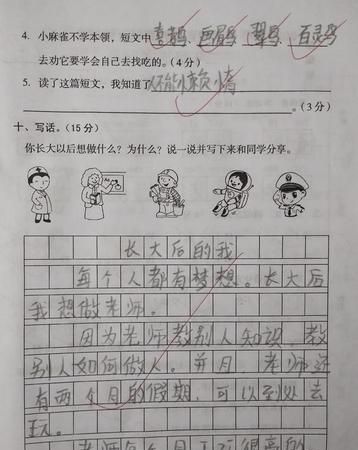 4. 小麻雀不学本领，短文中喜鹊、画眉鸟、翠鸟、百灵鸟
去劝它要学会自己去找吃的。(4分)
5. 读了这篇短文，我知道了不能懒惰
。(3分)
十、写话。(15分)
你长大以后想做什么？为什么？说一说并写下来和同学分享。
长大后的我
每个人都有梦想。长大后
我想做老师。
因为老师教别人知识，教
别人如何做人。并且，老师还
有两个月的假期，可以到处去
玩。
老师每个月工资很高的